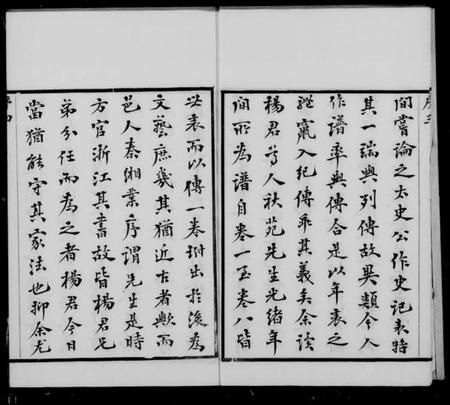 間嘗論之太史公作史記表特
其一端與列傳故異類今人
作譜率與傳合是以年表之
體竄入紀傳乖其義矣余讀
楊君尊人秋苑先生光緒年
間所為譜自卷一至卷八皆
以表而以傳一卷坿出於後為
文藝庶幾其猶近古者歟而
邑人秦緗業序謂先生是時
方官浙江其書故皆楊君兄
弟分任而為之者楊君今日
當猶能守其家法也抑余尤